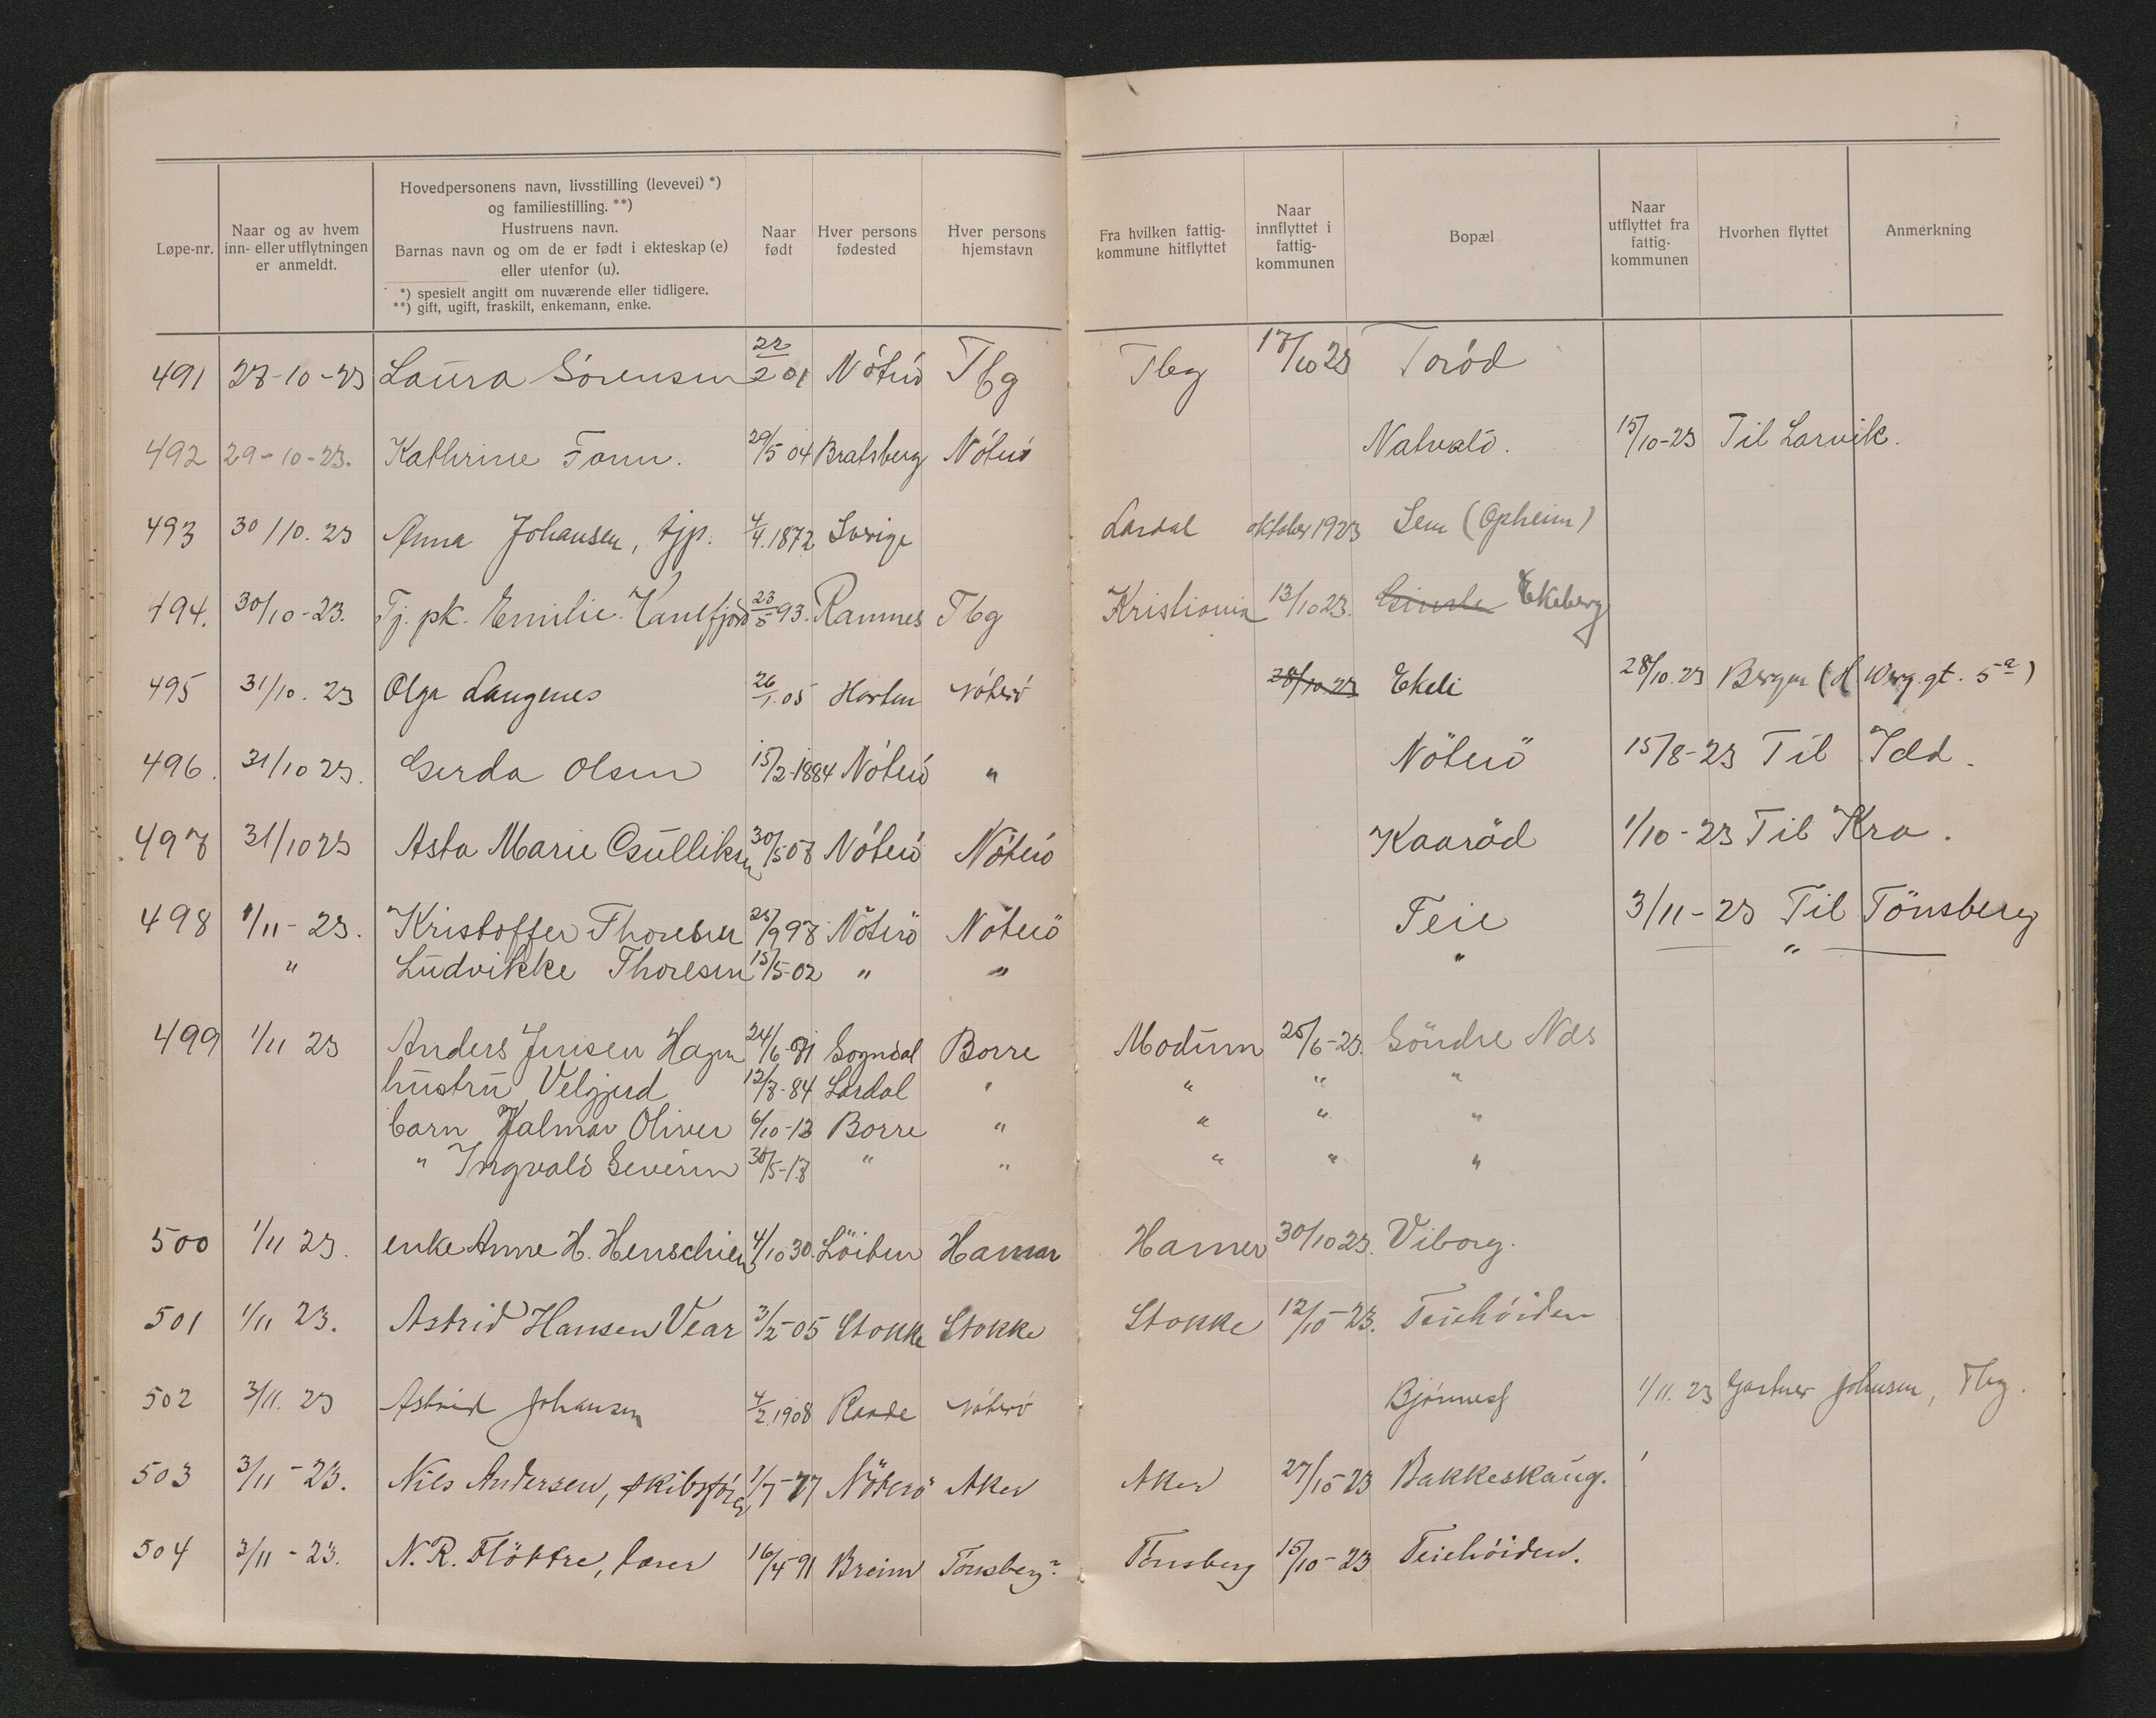 Løpe-nr. | Naar og av hvem inn- eller utflytningen er anmeldt. | Hovedpersonens navn, livsstilling (levevei) *) og familiestilling. **) Hustruens navn. Barnas navn og om de er født i ekteskap (e) eller utenfor (u). *) spesielt angitt om nuværende eller tidligere. **) gift, ugift, fraskilt, enkemann, enke. | Naar født | Hver persons fødested | Hver persons hjemstavn | Fra hvilken fattig-kommune hitflyttet | Naar innflyttet i fattig-kommunen | Bopæl | Naar utflyttet fra fattig-kommunen | Hvorhen flyttet | Anmerkning
491 27-10-23 Laura Sörensen 22/2 01 Nöterö Tbg Tbg 17/10 23 Toröd
492 29-10-23. Kathrine Fonn. 29/5 04 Bratsberg Nöterö Natvald. 15/10-23 Til Larvik.
493 30/10.23 Anna Johansen, tjp. 4/4.1872 Sverige Lardal oktober 1923 Sem (Opheim)
494. 30/10-23. Tj. pk. Emilie 23/5 93. Ramnes Tbg Kristiania 13/10 23. Ekeberg
495 31/10.23 Olga Langenes 26/1.05 Horten Nöterö 28/10 23 Ekeli 28/10.23 Bergen (H Werg.gt. 5a)
496. 31/10 23. Gerda Olsen 15/2-1884 Nöterö " Nöterö 15/8-23 Til Idd.
497 31/10 23 Asta Marie Gulliksen 30/5 07 Nöterö Nöterö Kaaröd 1/10-23 Til Kra.
498 1/11-23. Kristoffer Thoresen 25/9 97 Nöterö Nöterö Feie 3/11-23 Til Tönsberg
" Ludvikke Thoresen 15/5-02 " " " "
499 1/11 23 Anders Jensen Hagen 24/6-81 Sogndal Borre Modum 25/6-23. Söndre Nes
hustru Velgjerd 12/7-84 Lardal " " " "
barn Hjalmar Oliver 6/10-13 Borre " " " "
" Ingvald Severin 30/5-17 " " " " "
500 1/11 23. enke Anne H. Henschien 4/10 30. Löiten Hamar Hamar 30/10 23. Viborg.
501 1/11 23. Astrid Hansen Vear 3/2-05 Stokke Stokke Stokke 12/10-23. Teiehöiden
502 3/11.23 Astrid Johansen 4/2.1908 Raade Nöterö Bjørnes 1/11.23 Gartner Johnsen, Tbg.
503 3/11-23. Nils Andersen, skibsförer 1/7-77 Nöterö Aker Aker 27/10-23 Bakkeskaug.
504 3/11-23. N. R. Flöttre, lærer 16/4 91 Breim Tönsberg? Tönsberg 15/10-23 Teiehöiden.